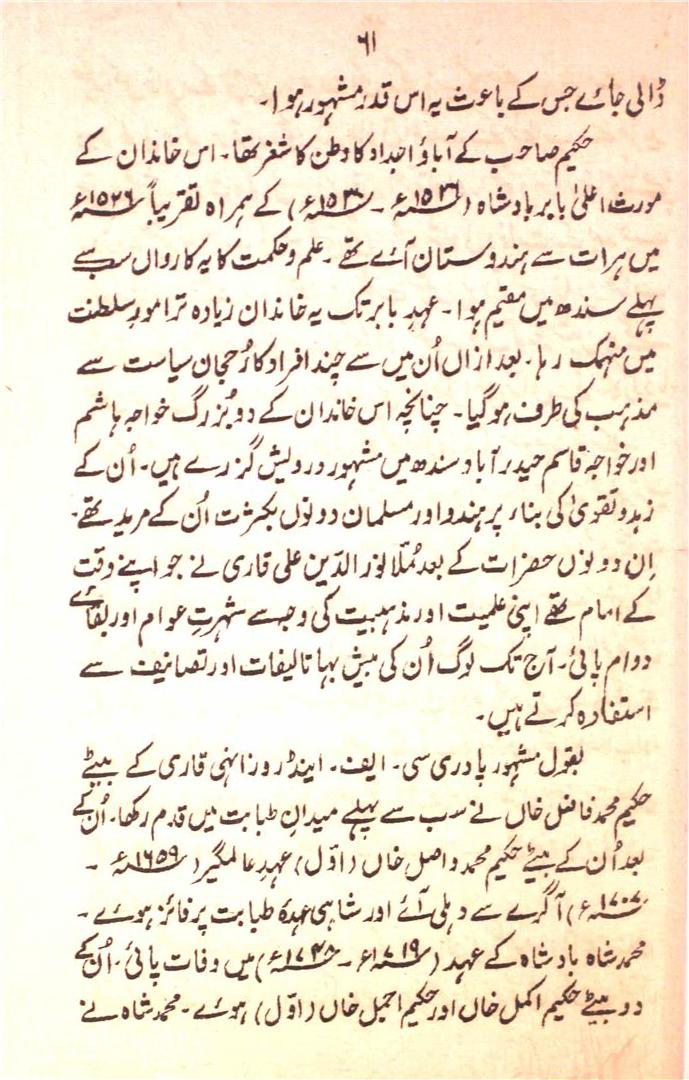 ۶۱
ڈالی جائے جس کے باعث یہ اس قدر مشہور ہوا۔
حکیم صاحب کے آباؤ اجداد کا وطن کاشغر تھا۔ اس خاندان کے
مورث اعلیٰ بابر بادشاہ (۱۵۲۶ء ۔ ۱۵۳۰ء) کے ہمراہ تقریباً ۱۵۲۶ء
میں ہرات سے ہندوستان آئے تھے ۔ علم و حکمت کا یہ کارواں سب سے
پہلے سندھ میں مقیم ہوا۔ عہدِ بابر تک یہ خاندان زیادہ تر امورِ سلطنت
میں منہمک رہا۔ بعد ازاں اُن میں سے چند افراد کا رُحجان سیاست سے
مذہب کی طرف ہو گیا۔ چنانچہ اس خاندان کے دو بُزرگ خواجہ ہاشم
اور خواجہ قاسم حیدر آباد سندھ میں مشہور درویش گزرے ہیں۔ اُن کے
زہد و تقویٰ کی بناء پر ہندو اور مسلمان دونوں بکثرت اُن کے مرید تھے۔
اِن دونوں حضرات کے بعد مُلّا نور الدّین علی قاری نے جو اپنے وقت
کے امام تھے اپنی علمیت اور مذہبیت کی وجہ سے شہرتِ عوام اور بقائے
دوام پائی۔ آج تک لوگ اُن کی بیش بہا تالیفات اور تصانیف سے
استفادہ کرتے ہیں۔
بقول مشہور پادری سی۔ ایف۔ اینڈروز انہی قاری کے بیٹے
حکیم محمد فاضل خاں نے سب سے پہلے میدانِ طبابت میں قدم رکھا۔ اُن کے
بعد اُن کے بیٹے حکیم محمد واصل خاں (اوّل) عہدِ عالمگیر (۱۶۵۹ء ۔
۱۷۰۷ء) آگرے سے دہلی آئے اور شاہی عہدۂ طبابت پر فائز ہوئے۔
محمد شاہ بادشاہ کے عہد (۱۷۱۹ء ۔ ۱۷۴۸ء) میں وفات پائی۔ اُن کے
دو بیٹے حکیم اکمل خاں اور حکیم اجمل خاں (اوّل) ہوئے۔ محمد شاہ نے